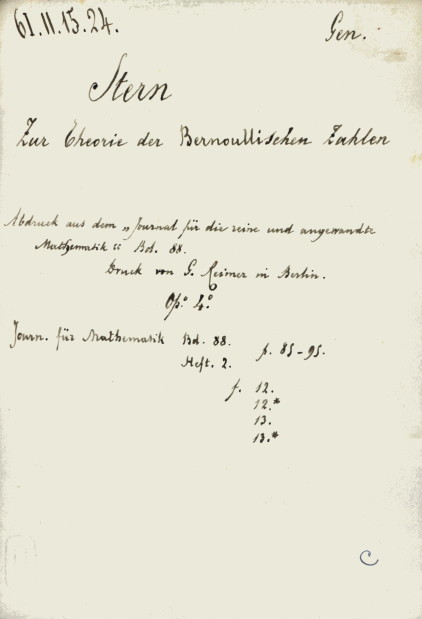 61.11.15.24.
Gen.
Stern
Zur Theorie der Bernoullischen Zahlen
Abdruck aus dem „Journal für die reine und angewandte
Mathematik“ Bd. 88.
Druck von G. Reimer in Berlin.
Op.º 4.º
Journ. für Mathematik Bd. 88.
Heft. 2.
p. 85-95.
f. 12.
12.*
13.
13.*
C